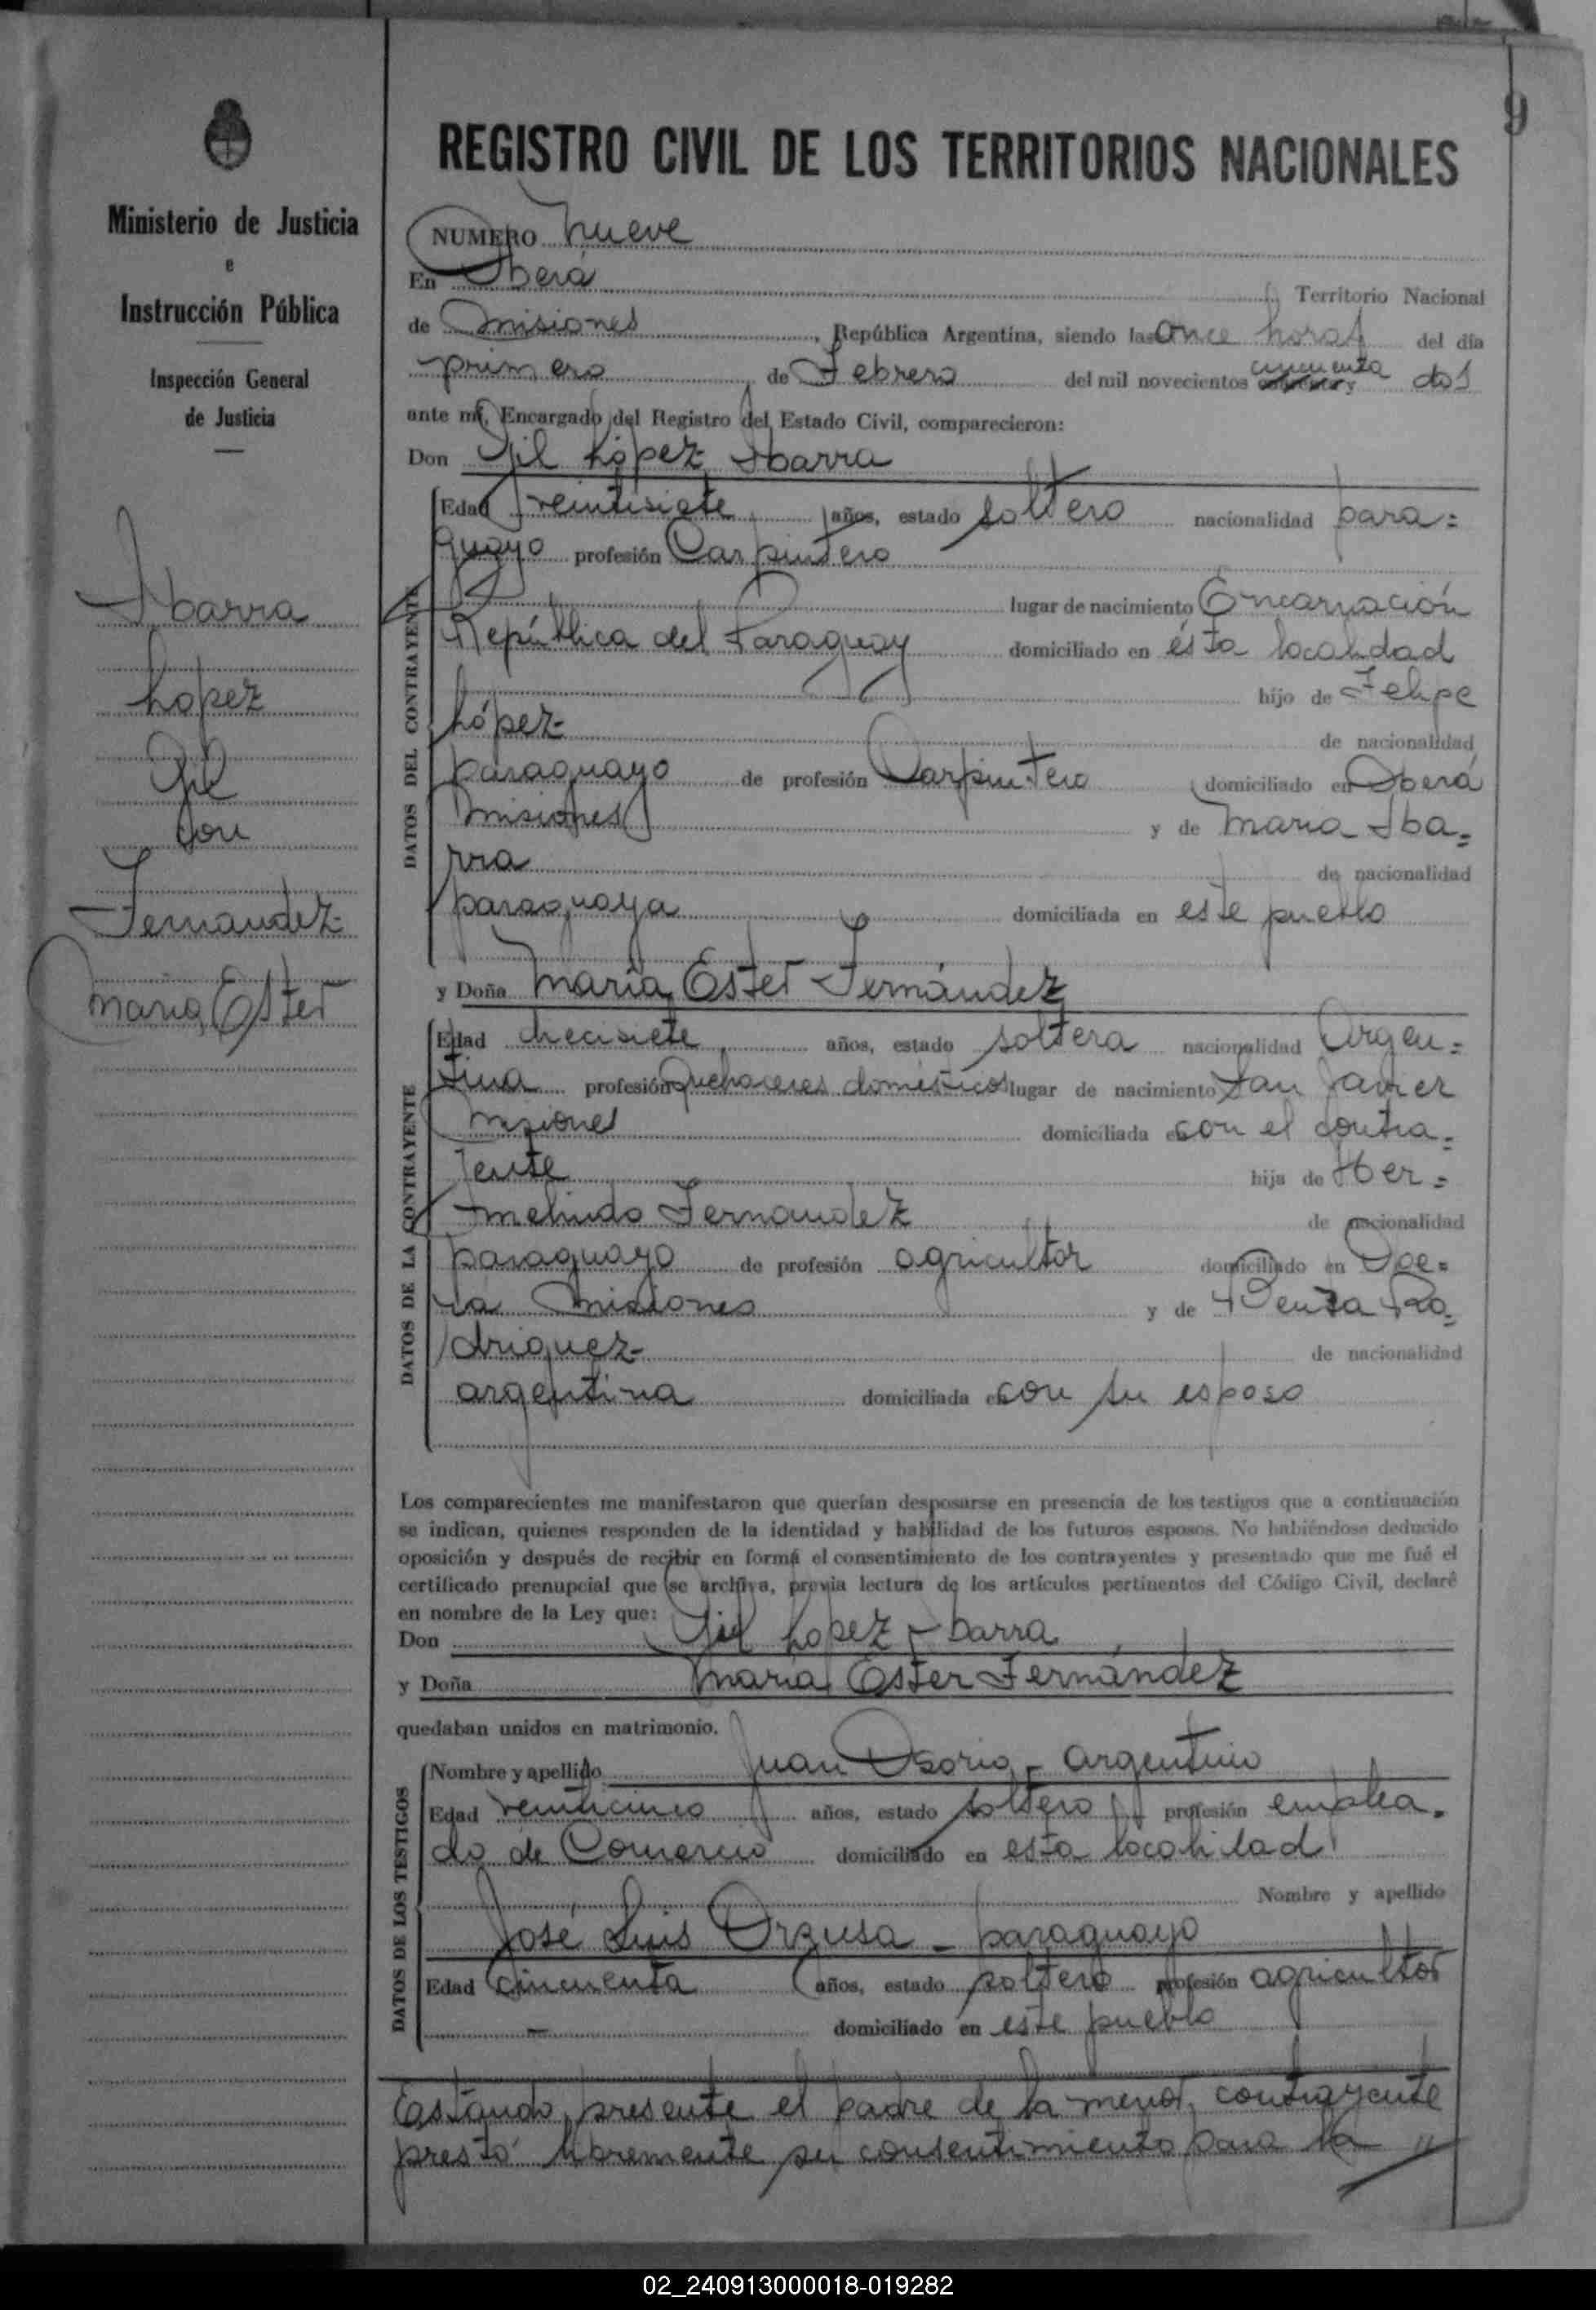 9
REGISTRO CIVIL DE LOS TERRITORIOS NACIONALES
Ministerio de Justicia
e
Instrucción Pública
Inspección General
de Justicia
Ibarra
Lopez
Gil
con
Fernandez
María Ester
NUMERO nueve
En Oberá Territorio Nacional
de Misiones, República Argentina, siendo las once horas del día
primero de Febrero del mil novecientos cincuenta y dos
ante mí, Encargado del Registro del Estado Civil, comparecieron:
Don Gil López Ibarra
DATOS DEL CONTRAYENTE
Edad veintisiete años, estado soltero nacionalidad para=
guayo profesión Carpintero
lugar de nacimiento Encarnación
República del Paraguay domiciliado en ésta localidad
hijo de Felipe
López de nacionalidad
paraguayo de profesión Carpintero domiciliado en Oberá
Misiones y de María Iba=
rra de nacionalidad
paraguaya domiciliada en este pueblo
y Doña María Ester Fernández
DATOS DE LA CONTRAYENTE
Edad diecisiete años, estado soltera nacionalidad Argen=
tina profesión quehaceres domésticos lugar de nacimiento San Javier
Misiones domiciliada en con el contra=
yente hija de Her=
melindo Fernandez de nacionalidad
paraguayo de profesión agricultor domiciliado en Obe=
rá Misiones y de Ro=
driguez de nacionalidad
argentina domiciliada en con su esposo
Los comparecientes me manifestaron que querían desposarse en presencia de los testigos que a continuación
se indican, quienes responden de la identidad y habilidad de los futuros esposos. No habiéndose deducido
oposición y después de recibir en forma el consentimiento de los contrayentes y presentado que me fué el
certificado prenupcial que se archiva, previa lectura de los artículos pertinentes del Código Civil, declaré
en nombre de la Ley que:
Don Gil Lopez Ibarra
y Doña María Ester Fernández
quedaban unidos en matrimonio.
DATOS DE LOS TESTIGOS
Nombre y apellido Juan Osorio - argentino
Edad veinticinco años, estado soltero profesión emplea=
do de Comercio domiciliado en esta localidad
Nombre y apellido
José Luis Orzusa - paraguayo
Edad cincuenta años, estado soltero profesión agricultor
- domiciliado en este pueblo
Estando presente el padre de la menor contrayente
prestó libremente su consentimiento para la //
02_240913000018-019282